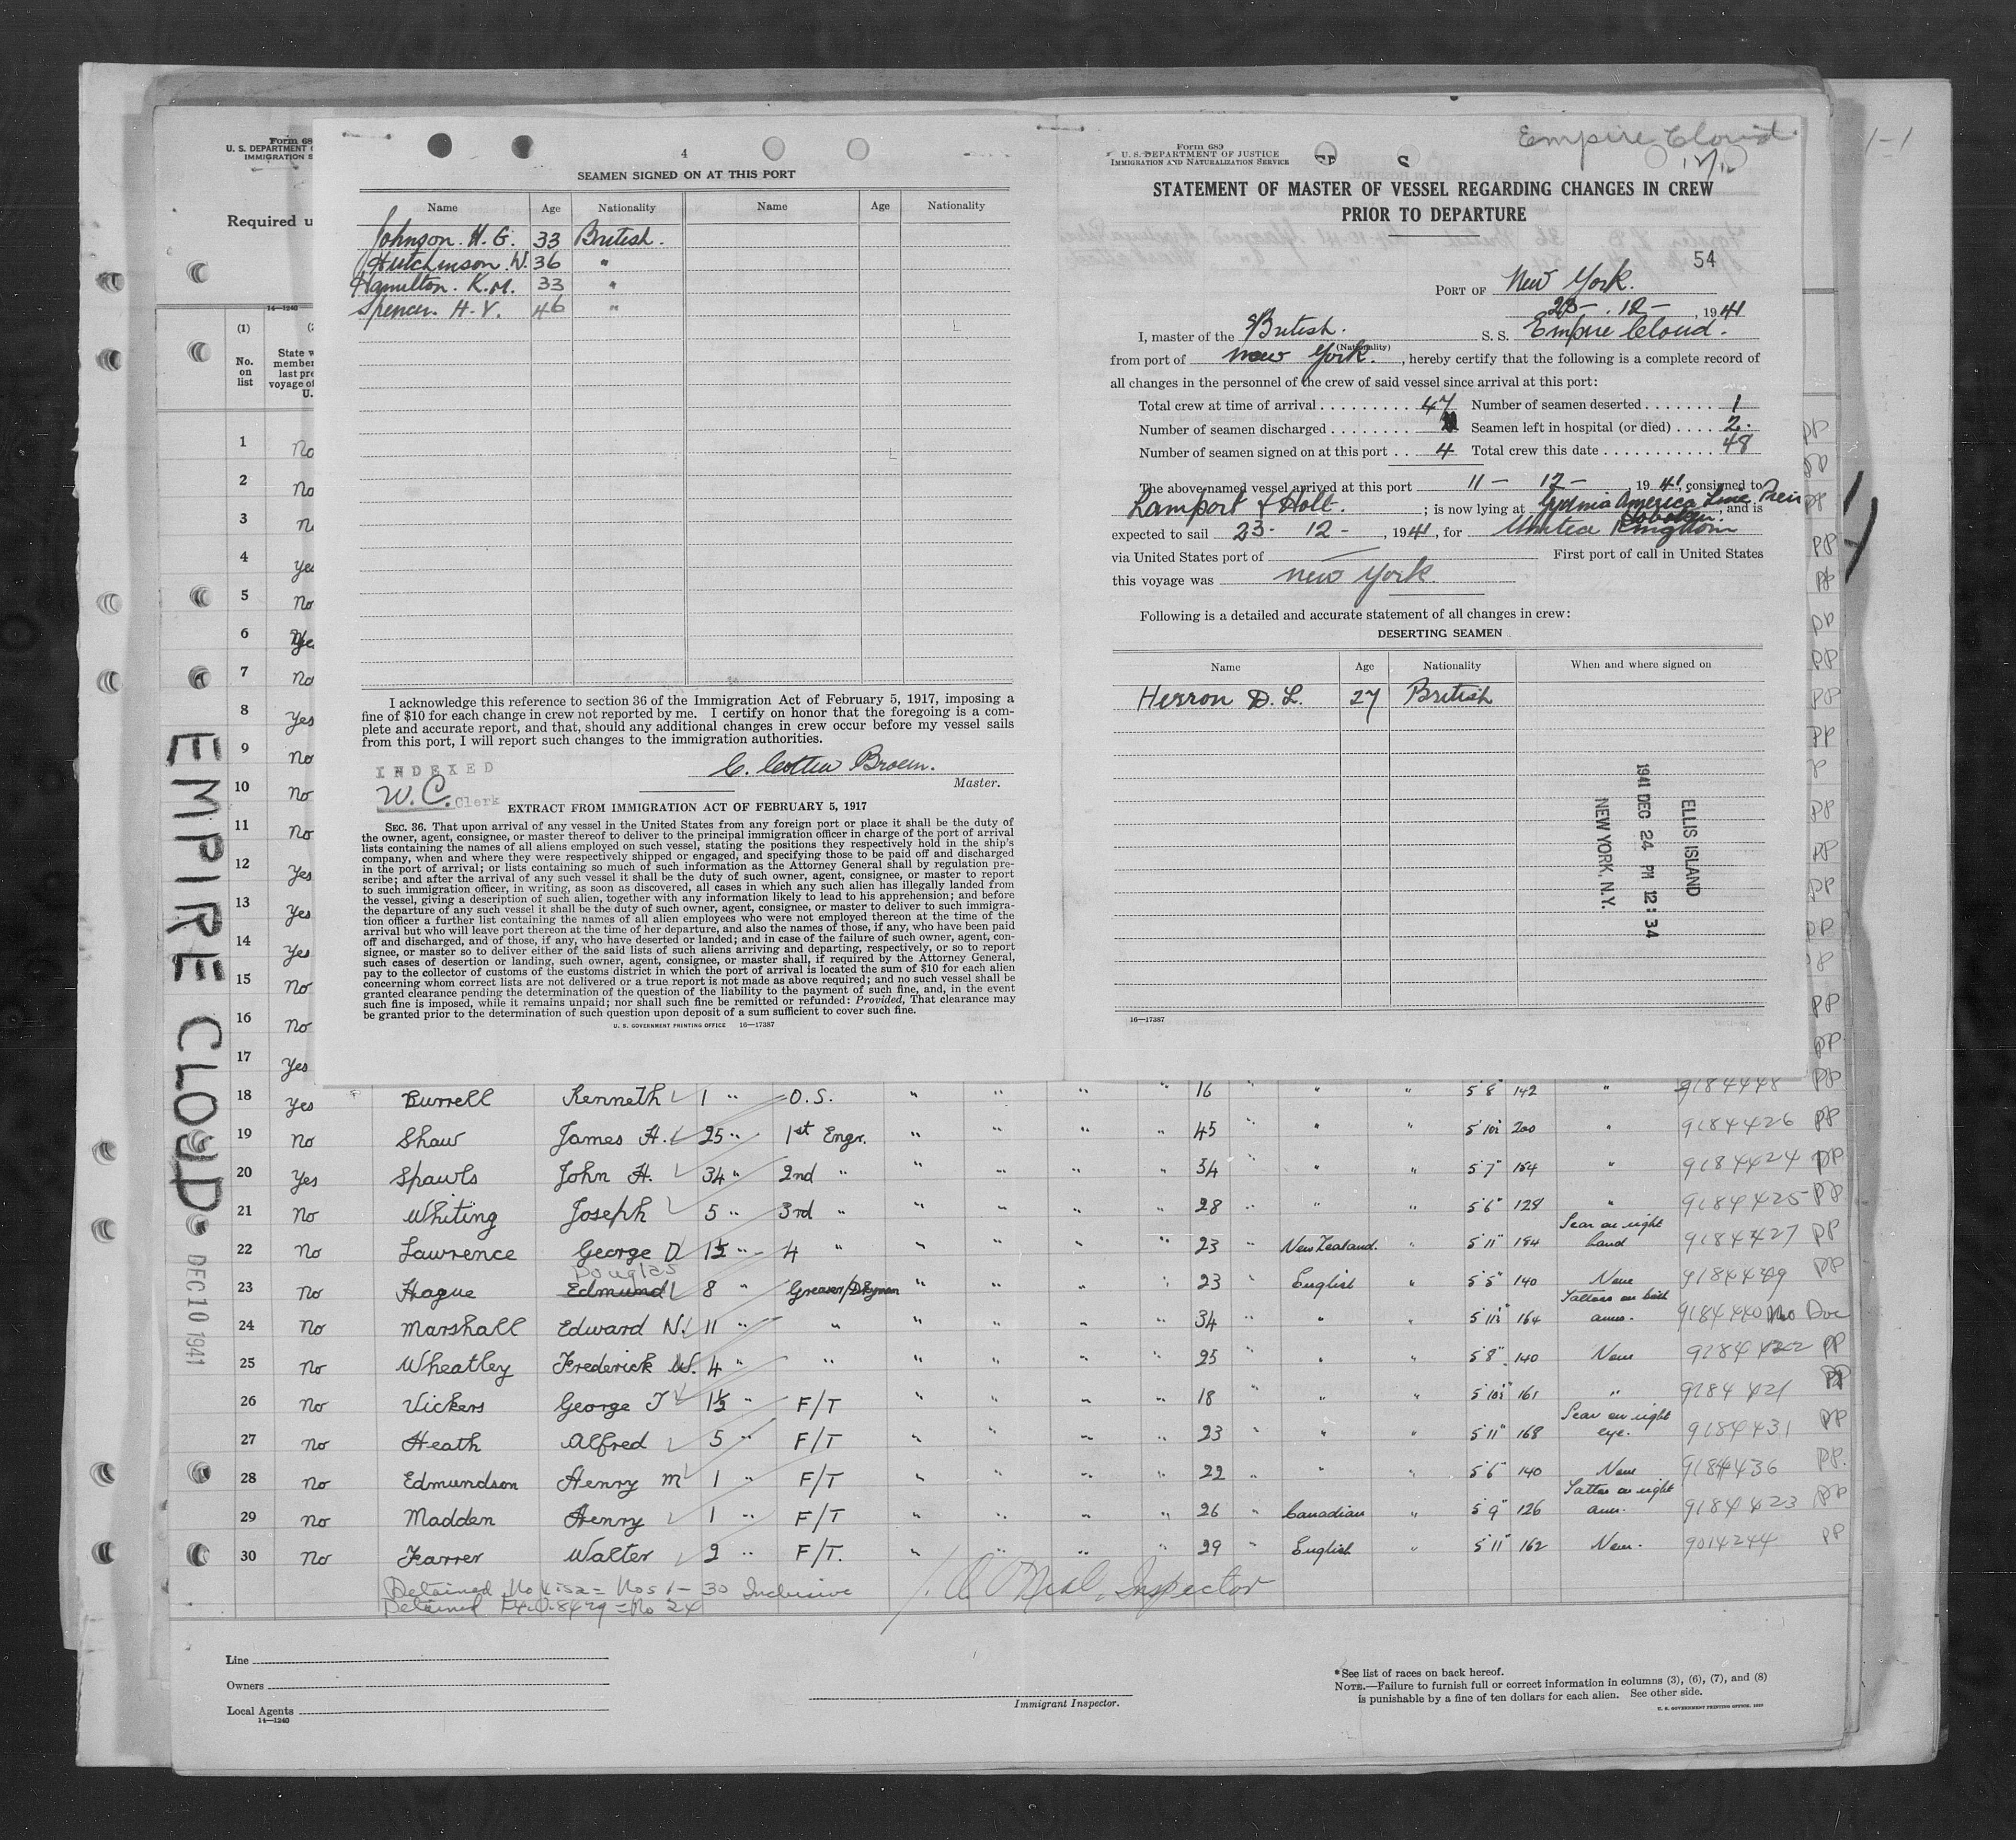 Form 689
U. S. DEPARTMENT
IMMIGRATION S
Required u
14—1240
(1)
No.
on
list
State w
member
last pre
voyage of
U.
1 No
2 No
3 N
4 Yes
5 No
6 Ye
7 No
8 Yes
9 No
10 No
11 No
12 Yes
13 Yes
14 Yes
15 No
16 No
17 Yes
EMPIRE CLOUD
DEC 10 1941
4
SEAMEN SIGNED ON AT THIS PORT
Name Age Nationality Name Age Nationality
Johnson. H. G. 33 British.
Hutchinson. W. 36 "
Hamilton. K. M. 33 "
Spencer. H. V. 46 "
I acknowledge this reference to section 36 of the Immigration Act of February 5, 1917, imposing a
fine of $10 for each change in crew not reported by me. I certify on honor that the foregoing is a com-
plete and accurate report, and that, should any additional changes in crew occur before my vessel sails
from this port, I will report such changes to the immigration authorities.
INDEXED
W. C. Clerk
Master.
EXTRACT FROM IMMIGRATION ACT OF FEBRUARY 5, 1917
SEC. 36. That upon arrival of any vessel in the United States from any foreign port or place it shall be the duty of
the owner, agent, consignee, or master thereof to deliver to the principal immigration officer in charge of the port of arrival
lists containing the names of all aliens employed on such vessel, stating the positions they respectively hold in the ship's
company, when and where they were respectively shipped or engaged, and specifying those to be paid off and discharged
in the port of arrival; or lists containing so much of such information as the Attorney General shall by regulation pre-
scribe; and after the arrival of any such vessel it shall be the duty of such owner, agent, consignee, or master to report
to such immigration officer, in writing, as soon as discovered, all cases in which any such alien has illegally landed from
the vessel, giving a description of such alien, together with any information likely to lead to his apprehension; and before
the departure of any such vessel it shall be the duty of such owner, agent, consignee, or master to deliver to such immigra-
tion officer a further list containing the names of all alien employees who were not employed thereon at the time of the
arrival but who will leave port thereon at the time of her departure, and also the names of those, if any, who have been paid
off and discharged, and of those, if any, who have deserted or landed; and in case of the failure of such owner, agent, con-
signee, or master so to deliver either of the said lists of such aliens arriving and departing, respectively, or so to report
such cases of desertion or landing, such owner, agent, consignee, or master shall, if required by the Attorney General,
pay to the collector of customs of the customs district in which the port of arrival is located the sum of $10 for each alien
concerning whom correct lists are not delivered or a true report is not made as above required; and no such vessel shall be
granted clearance pending the determination of the question of the liability to the payment of such fine, and, in the event
such fine is imposed, while it remains unpaid; nor shall such fine be remitted or refunded: Provided, That clearance may
be granted prior to the determination of such question upon deposit of a sum sufficient to cover such fine.
U. S. GOVERNMENT PRINTING OFFICE 16—17387
Form 689
U. S. DEPARTMENT OF JUSTICE
IMMIGRATION AND NATURALIZATION SERVICE
Empire Cloud
1-1
STATEMENT OF MASTER OF VESSEL REGARDING CHANGES IN CREW
PRIOR TO DEPARTURE
54
PORT OF New York.
23- 12-, 1941
I, master of the British. S. S. Empire Cloud.
(Nationality)
from port of New York., hereby certify that the following is a complete record of
all changes in the personnel of the crew of said vessel since arrival at this port:
Total crew at time of arrival 47 Number of seamen deserted 1
Number of seamen discharged Seamen left in hospital (or died) 2.
Number of seamen signed on at this port 4 Total crew this date 48
The above-named vessel arrived at this port 11- 12-, 1941, consigned to
Lamport & Holt.; is now lying at Gydnia America Line Pier Hoboken, and is
expected to sail 23- 12-, 1941, for United Kingdom
via United States port of — First port of call in United States
this voyage was New York.
Following is a detailed and accurate statement of all changes in crew:
DESERTING SEAMEN
Name Age Nationality When and where signed on
Herron D. L. 27 British
ELLIS ISLAND
1941 DEC 24 PM 12:34
NEW YORK, N.Y.
16—17387
18 Yes Burrell Kenneth 1 " O.S. " " " " 16 " " " 5'8" 142 " 9184448 PP
19 No Shaw James H. 25 " 1st Engr. " " " " 45 " " " 5'10½ 200 " 9184426 PP
20 Yes Spawls John H. 34 " 2nd " " " " " 34 " " " 5'7" 154 " 9184424 PP
21 No Whiting Joseph 5 " 3rd " " " " " 28 " " " 5'6" 128 " 9184425 PP
22 No Lawrence George D 1½ " 4 " " " " " 23 " New Zealand. " 5'11" 184 Scar on right hand 9184427 PP
Douglas
23 No Hague Edmund 8 " Greaser/Dkyman " " " " 23 " English " 5'5" 140 None PP
24 No Marshall Edward N. 11 " " " " " " 34 " " " 5'11½ 164 Tattoos on both arms. 9184440 No Doc
25 No Wheatley Frederick W. 4 " " " " " " 25 " " " 5'8" 140 None 9184422 PP
26 No Vickers George T 1½ " F/T " " " " 18 " " " 5'10½ 161 " 9184421 PP
27 No Heath Alfred 5 " F/T " " " " 23 " " " 5'11" 168 Scar on right eye. 9184431 PP
28 No Edmundson Henry M 1 " F/T " " " " 22 " " " 5'6" 140 None 9184436 PP.
29 No Madden Henry 1 " F/T " " " " 26 " Canadian " 5'9" 126 Tattoo on right arm. 9184423 PP
30 No Farrer Walter 2 " F/T. " " " " 29 " English " 5'11" 162 None. 9014244 PP
Detained No Visa = Nos 1-30 Inclusive
Detained = No 24
Inspector
Line
Owners
Local Agents
14—1240
Immigrant Inspector.
*See list of races on back hereof.
NOTE.—Failure to furnish full or correct information in columns (3), (6), (7), and (8)
is punishable by a fine of ten dollars for each alien. See other side.
U. S. GOVERNMENT PRINTING OFFICE